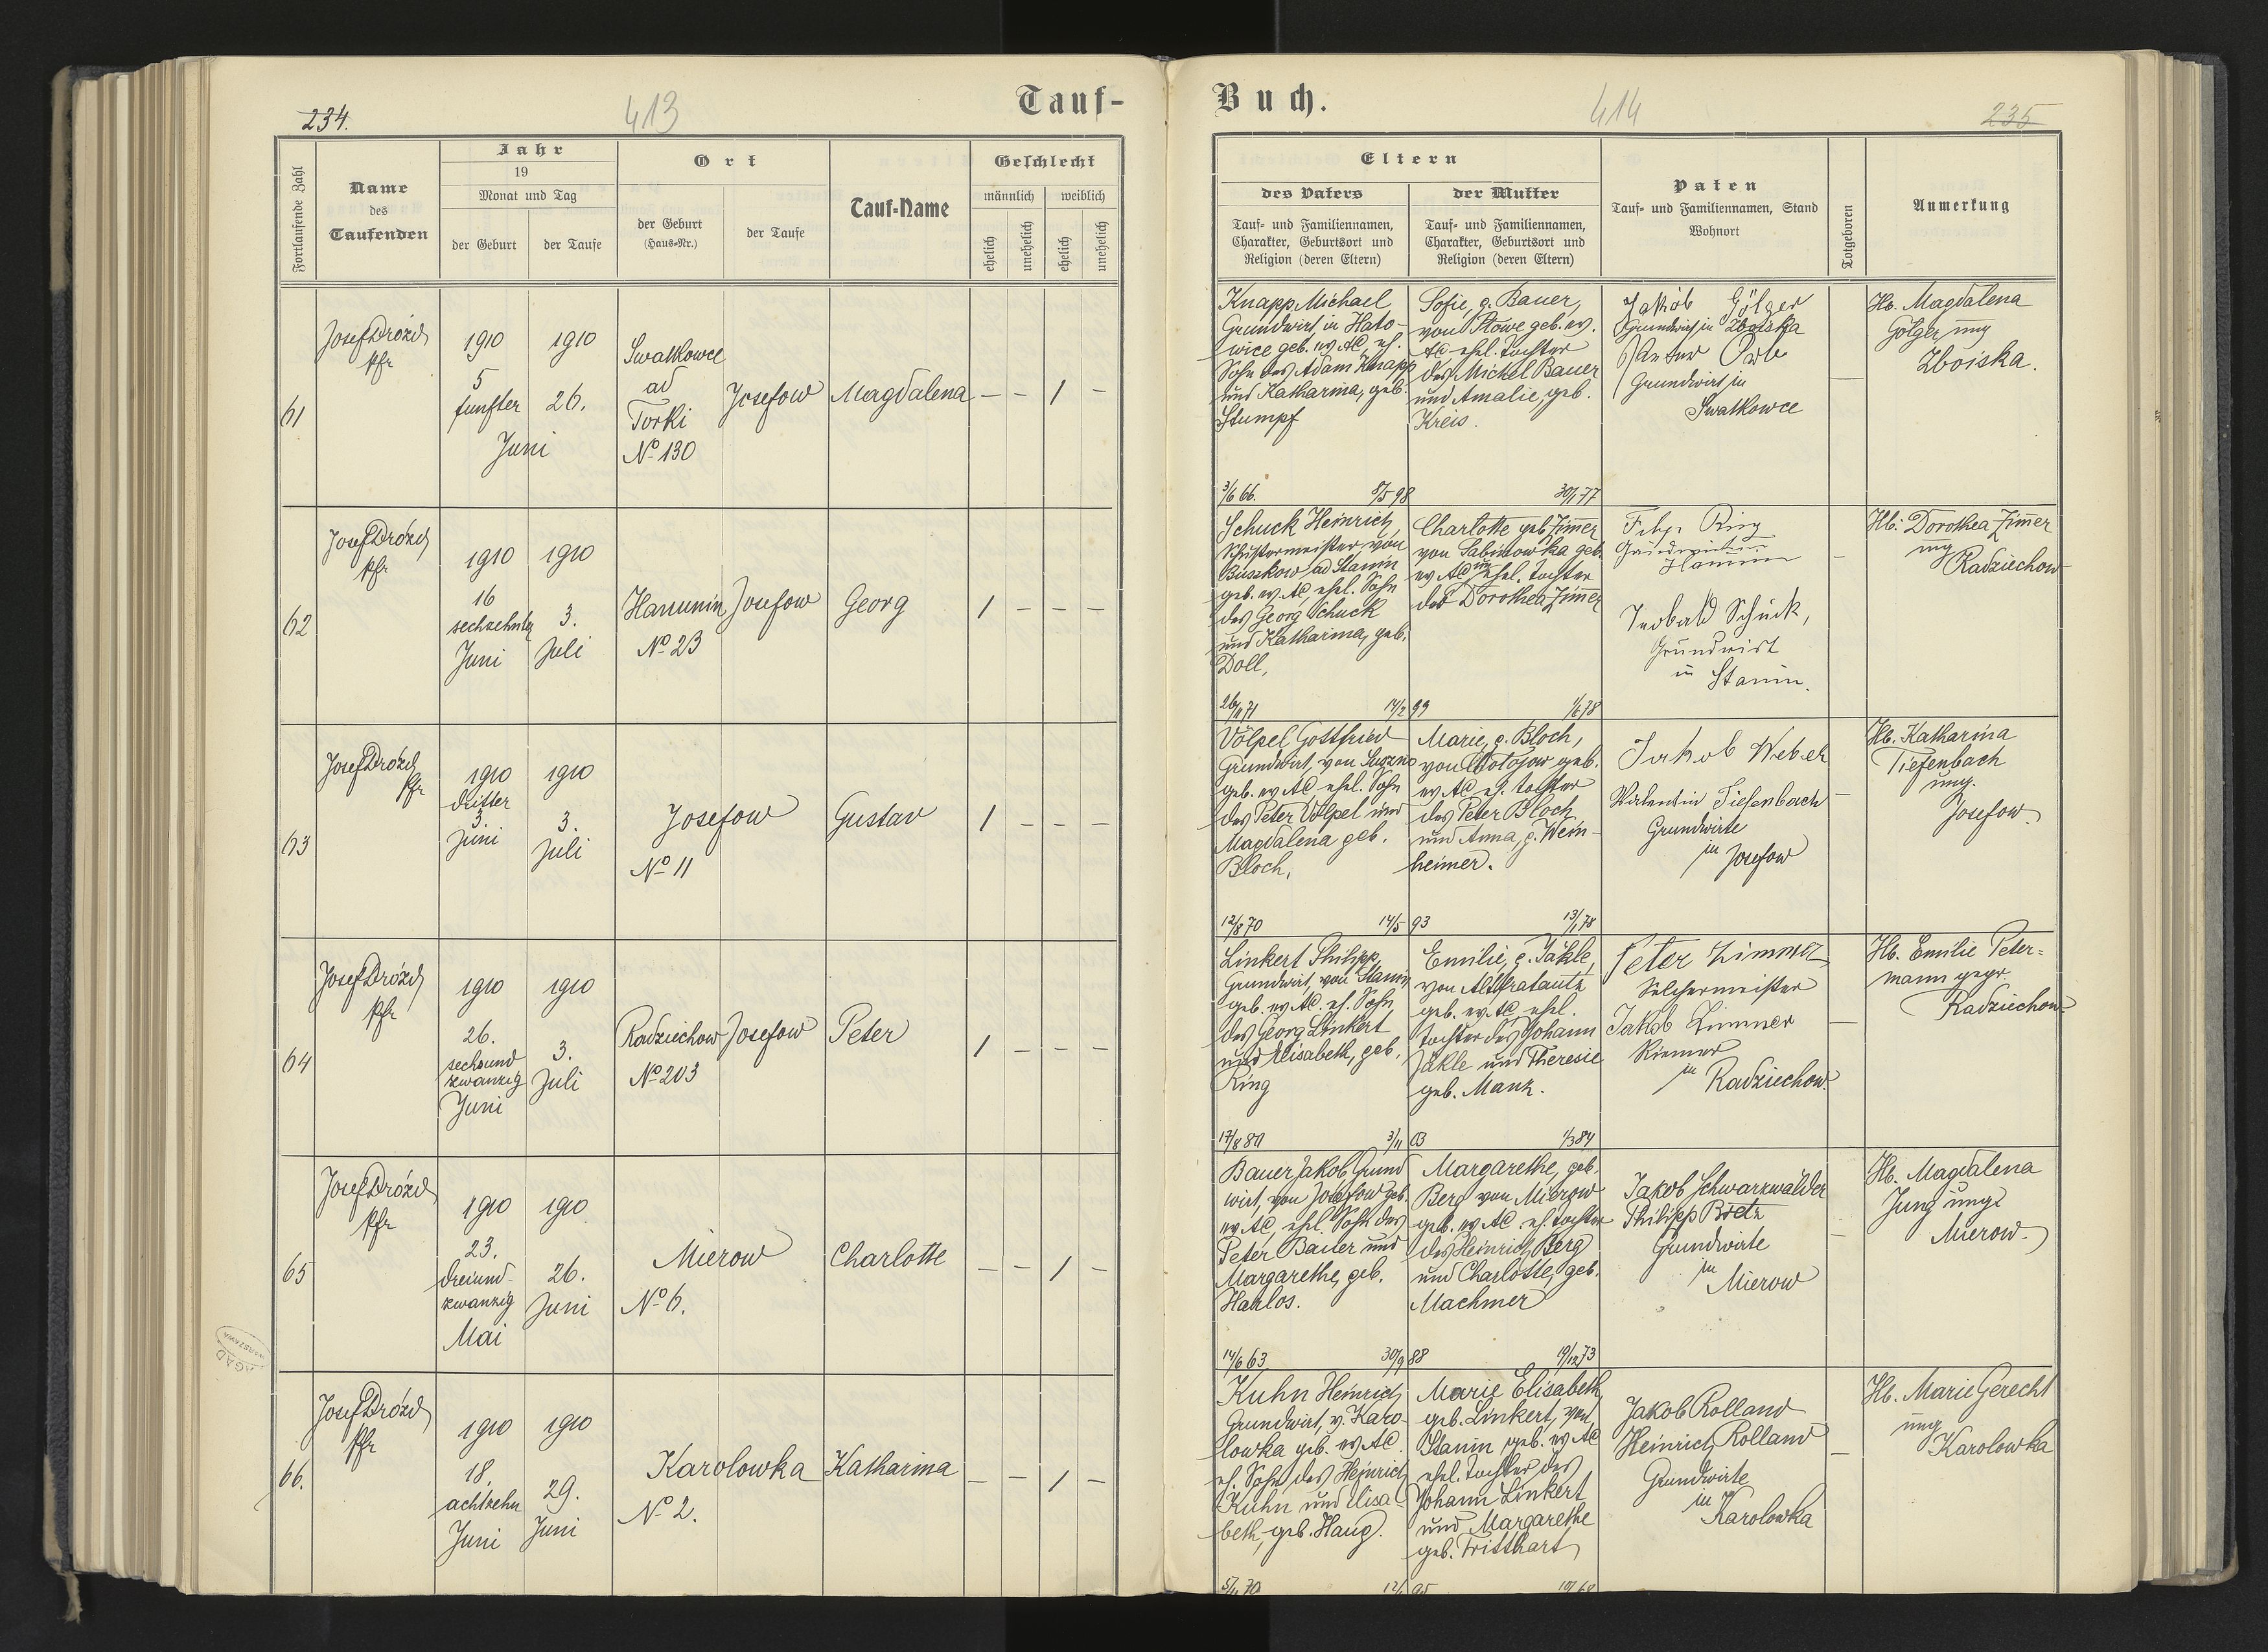 234.
413
Tauf-
Fortlaufende Zahl
Name
des
Taufenden
Jahr
19
Monat und Tag
der Geburt
der Taufe
Ort
der Geburt
(Haus-Nr.)
der Taufe
Tauf-Name
Geschlecht
männlich
weiblich
ehelich
unehelich
ehelich
unehelich
61
Josef Drózd
Pfr
1910
5
fünfter
Juni
1910
26.
Swatkowce
ad
Torki
No 130
Josefow
Magdalena
– – / –
62
Josef Drózd
Pfr
1910
16
sechzehnter
Juni
1910
3.
Juli
Hanunin
No 23
Josefow
Georg
/ – – –
63
Josef Drózd
Pfr
1910
dritter
3.
Juni
1910
3.
Juli
Josefow
No 11
Gustav
/ – – –
64
Josef Drózd
Pfr
1910
26.
sechsund
zwanzig
Juni
1910
3.
Juli
Radziechow
No 203
Josefow
Peter
/ – – –
65
Josef Drózd
Pfr
1910
23.
dreiund-
zwanzig
Mai
1910
26.
Juni
Mierow
No 6.
Charlotte
– – / –
66.
Josef Drózd
Pfr
1910
18.
achtzehn
Juni
1910
29.
Juni
Karolowka
No 2.
Katharina
– – / –
AGAD
WARSZAWA
Buch.
414
235
Eltern
des Vaters
Tauf- und Familiennamen,
Charakter, Geburtsort und
Religion (deren Eltern)
der Mutter
Tauf- und Familiennamen,
Charakter, Geburtsort und
Religion (deren Eltern)
Paten
Tauf- und Familiennamen, Stand
Wohnort
Totgeboren
Anmerkung
Knapp Michael
Grundwirt, in Hato-
wice geb. ev AC, eh.
Sohn des Adam Knapp
und Katharina, geb.
Stumpf
3/6 66.
8/5 98
Sofie, g. Bauer,
von geb. ev.
AC ehel. Tochter
des Michel Bauer
und Amalie, geb.
Kreis.
30/1 77
Jakob Gölger
Grundwirt in Zboiska
Grundwirt in
Swatkowce
–
Hb. Magdalena
Golger, ung
Zboiska.
Schuck Heinrich,
Schustermeister von
Buszkow ad Stanin
geb. ev AC, ehel. Sohn
des Georg Schuck
und Katharina, geb.
Doll,
14/2 99
Charlotte geb Zimer
von Sabinowka geb.
ev AC unehel. Tochter
der Dorothea Zimer
1/6 78
Ring
Teobald Schuck,
Grundwirt
in Stanin.
–
Hb: Dorothea Zimer
ung
Radziechow
Völpel Gottfried
Grundwirt, von
geb. ev AC ehel. Sohn
des Peter Völpel und
Magdalena geb.
Bloch,
12/8 70
14/5 93
Marie, g. Bloch,
von geb.
ev AC eh. Tochter
des Peter Bloch
und Anna, g. Wein-
heimer.
13/1 78
Jakob Weber
Tiefenbach
Grundwirte
in Josefow
–
Hb. Katharina
Tiefenbach
ung.
Josefow
Linkert Philipp,
Grundwirt, von Stanin
geb. ev AC. eh. Sohn
des Georg Linkert
und Elisabeth, geb.
Ring
3/11 03
Emilie, g. Jäkle,
von Altfratautz
geb. ev. AC ehel.
Tochter des Johann
Jäkle und Theresie
geb. Manz.
1/3 84
Peter Zimmer
Selchermeister
Jakob Zimmer
Riemer
in Radziechow.
–
Hb. Emilie Peter=
mann gepr.
Radziechow
Bauer Jakob Grund
wirt, von Josefow geb.
ev AC, ehel. Sohn des
Peter Bauer und
Margarethe, geb.
Harlos.
14/6 63
30/9 88
Margarethe, geb.
Berg von Mierow
geb. ev AC. eh. Tochter
des Heinrich Berg
und Charlotte, geb.
Machmer
19/12 73
Jakob Schwarzwälder
Philipp Bietz
Grundwirte
in
Mierow
–
Hb. Magdalena
Jung ung.
Mierow
Kuhn Heinrich
Grundwirt, v. Karo-
lowka geb. ev AC.
eh. Sohn des Heinrich
Kuhn und Elisa-
beth, geb. Haug.
Marie Elisabeth
geb. Linkert, von
Stanin geb. ev AC
ehel. Tochter des
Johann Linkert
und Margarethe
geb. Tritthart
Jakob Rolland
Heinrich Rolland
Grundwirte
in
Karolowka
–
Hb. Marie Gerecht
ung
Karolowka